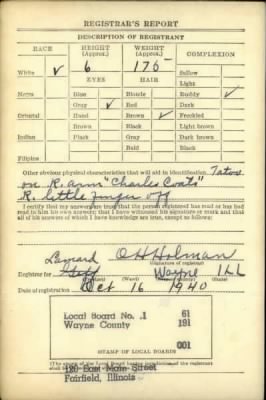 REGISTRAR'S REPORT
DESCRIPTION OF REGISTRANT
RACE HEIGHT (Approx.) WEIGHT (Approx.) COMPLEXION
White ✓ 6 175 Sallow
EYES HAIR Light
Negro Blue Blonde Ruddy ✓
Gray ✓ Red Dark
Oriental Hazel Brown ✓ Freckled
Brown Black Light brown
Indian Black Gray Dark brown
Bald Black
Filipino
Other obvious physical characteristics that will aid in identification Tatoo
on R. arm "Charles Coats"
R. little finger off
I certify that my answers are true; that the person registered has read or has had
read to him his own answers; that I have witnessed his signature or mark and that
all of his answers of which I have knowledge are true, except as follows:
O H Holman
(Signature of registrar)
Registrar for Wayne Ill
(Ward) (City or county)
Date of registration Oct 16 1940
Local Board No. 1 61
Wayne County 191
001
STAMP OF LOCAL BOARD
120 East Main Street
Fairfield, Illinois